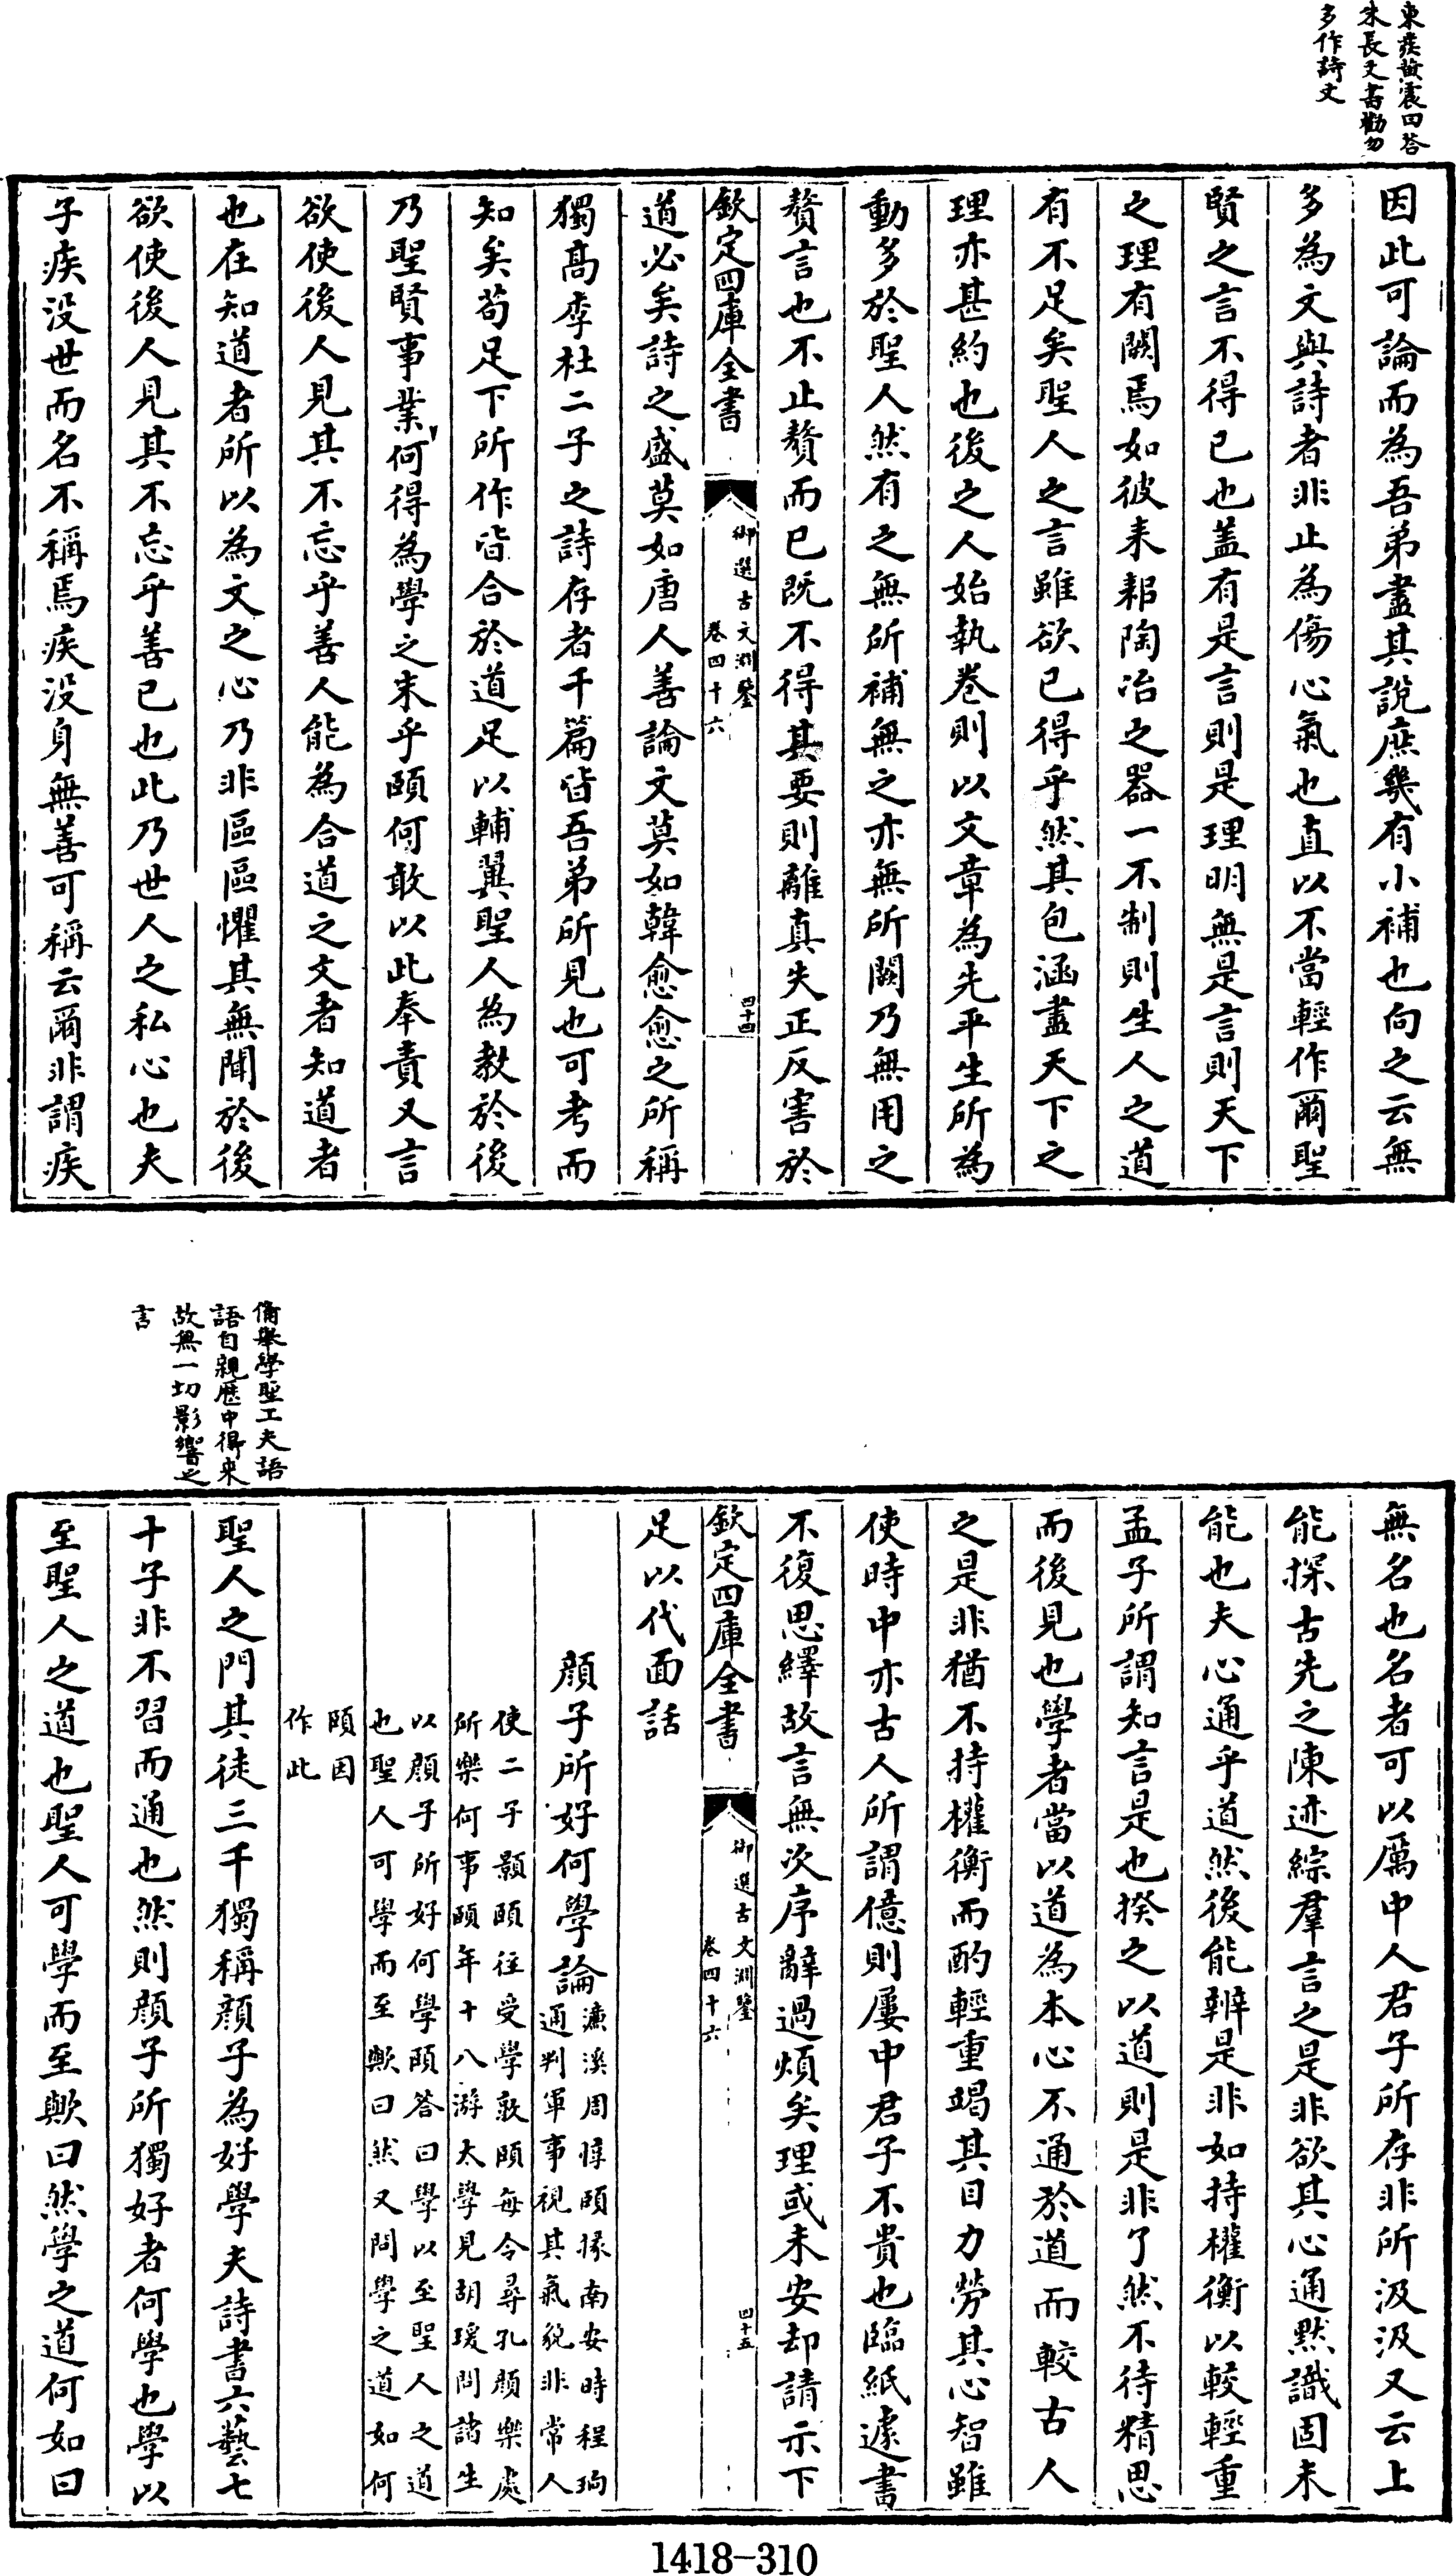 東發黃震曰答
朱長文書勸勿
多作詩文
因此可論而為吾弟盡其說庶幾有小補也向之云無
多為文與詩者非止為傷心氣也直以不當輕作爾聖
賢之言不得已也蓋有是言則是理明無是言則天下
之理有闕焉如彼耒耜陶冶之器一不制則生人之道
有不足矣聖人之言雖欲已得乎然其包涵盡天下之
理亦甚約也後之人始執卷則以文章為先平生所為
動多於聖人然有之無所補無之亦無所闕乃無用之
贅言也不止贅而已既不得其要則離真失正反害於
欽定四庫全書
御選古文淵鑒
卷四十六
四十四
道必矣詩之盛莫如唐人善論文莫如韓愈愈之所稱
獨高李杜二子之詩存者千篇皆吾弟所見也可考而
知矣苟足下所作皆合於道足以輔翼聖人為教於後
乃聖賢事業何得為學之末乎頤何敢以此奉責又言
欲使後人見其不忘乎善人能為合道之文者知道者
也在知道者所以為文之心乃非區區懼其無聞於後
欲使後人見其不忘乎善已也此乃世人之私心也夫
子疾没世而名不稱焉疾没身無善可稱云爾非謂疾
備舉學聖工夫語
語自親歷中得來
故無一切影響之
言
無名也名者可以厲中人君子所存非所汲汲又云上
能探古先之陳迹綜羣言之是非欲其心通默識固未
能也夫心通乎道然後能辨是非如持權衡以較輕重
孟子所謂知言是也揆之以道則是非了然不待精思
而後見也學者當以道為本心不通於道而較古人
之是非猶不持權衡而酌輕重竭其目力勞其心智雖
使時中亦古人所謂億則屢中君子不貴也臨紙遽書
不復思繹故言無次序辭過煩矣理或未安却請示下
欽定四庫全書
御選古文淵鑒
卷四十六
四十五
足以代面話
顔子所好何學論
濂溪周惇頤掾南安時程珦
通判軍事視其氣貌非常人
使二子顥頤往受學敦頤每令尋孔顔樂處
所樂何事頤年十八游太學見胡瑗問諸生
以顔子所好何學頤答曰學以至聖人之道
也聖人可學而至歟曰然又問學之道如何
頤因
作此
聖人之門其徒三千獨稱顔子為好學夫詩書六藝七
十子非不習而通也然則顔子所獨好者何學也學以
至聖人之道也聖人可學而至歟曰然學之道何如曰
1418-310